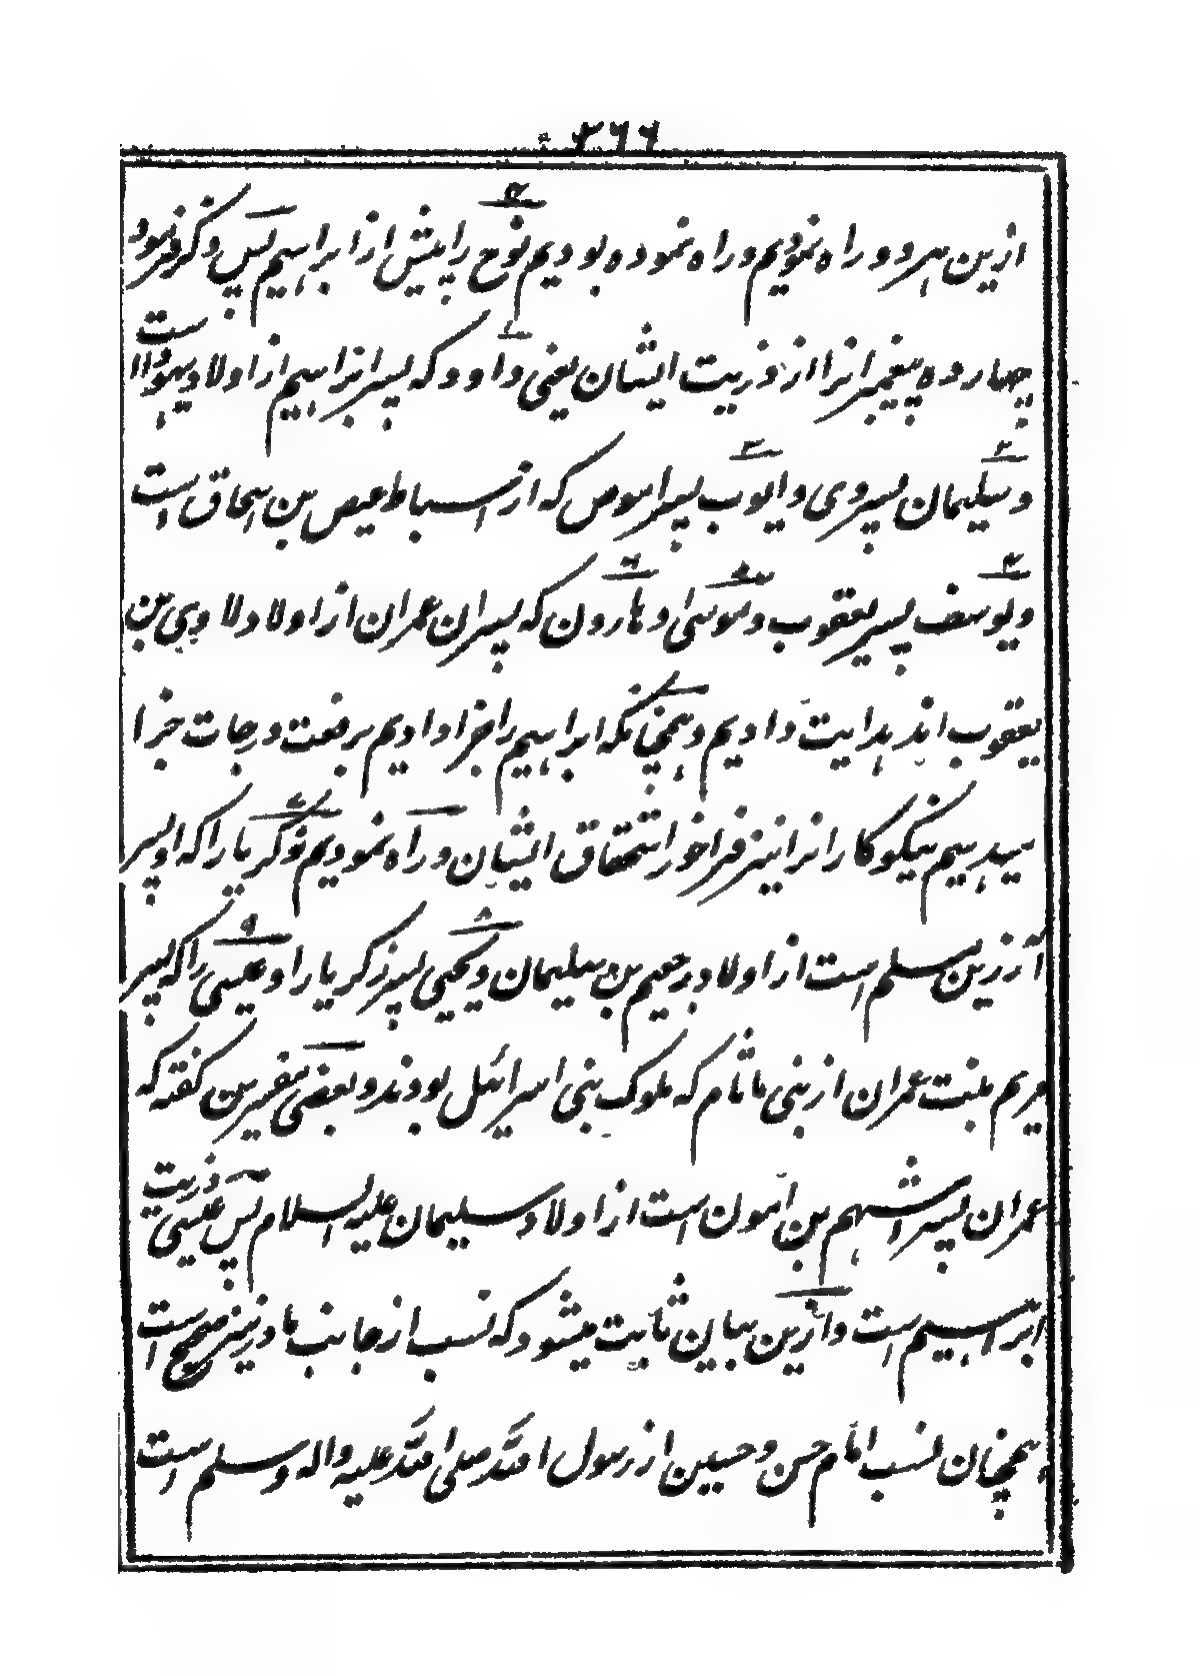 ۳۶۶
ازین هر دو و راه نمودیم و راه نموده بودیم نوح را پیش از ابراهیم پس ذکر فرمود
چهارده پیغمبرانرا از ذریت ایشان یعنی داود که پسر ابراهیم از اولاد یهودا است
۲ و سلیمان پسر وی ۳ و ایوب پسر اموص که از اسباط عیص بن اسحاق است
۴ و یوسف پسر یعقوب ۵ و موسی ۶ و هارون که پسران عمران از اولاد لاوی بن
یعقوب اند هدایت دادیم و همچنانکه ابراهیم را جزا دادیم برفعت درجات جزا
میدهیم نیکوکارانرا نیز فراخور استحقاق ایشان و راه نمودیم ۷ زکریا را که او پسر
آزر بن مسلم است از اولاد رجعیم بن سلیمان ۸ و یحیی پسر زکریا را ۹ و عیسی را که پسر
مریم بنت عمران از بنی ماثام که ملوک بنی اسرائیل بودند و بعضی مفسرین گفته که
عمران پسر اشهم بن امون است از اولاد سلیمان علیه السلام پس عیسی ذریت
ابراهیم است و ازین بیان ثابت میشود که نسب از جانب مادر نیز صحیح است
همچنان نسب امام حسن و حسین از رسول الله صلی الله علیه واله وسلم است